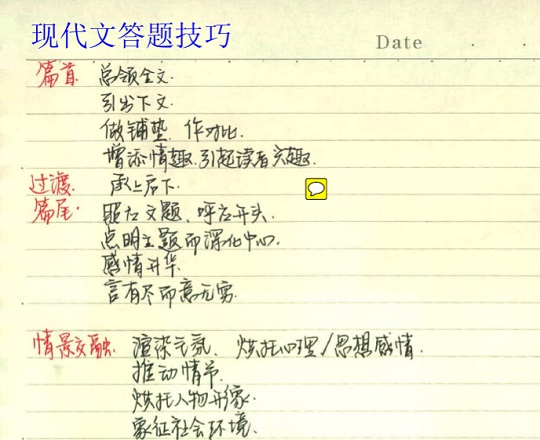 现代文答题技巧
Date
篇首 总领全文.
引出下文.
做铺垫. 作对比.
增添情趣.引起读者兴趣.
过渡. 承上启下.
篇尾. 照应文题、呼应开头.
点明主题而深化中心.
感情升华.
言有尽而意无穷.
情景交融. 渲染气氛. 烘托心理/思想感情.
推动情节.
烘托人物形象.
象征社会环境.